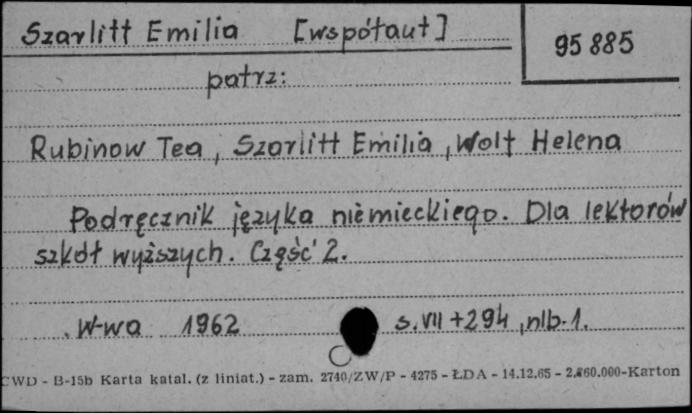 Szarlitt Emilia [współaut]
95 885
patrz:
Rubinow Tea, Szarlitt Emilia, Wolf Helena
Podręcznik języka niemieckiego. Dla lektorów
szkół wyższych. Część 2.
W-wa 1962 s. VII + 294, nlb. 1.
CWD - B-15b Karta katal. (z liniat.) - zam. 2740/ZW/P - 4275 - ŁDA - 14.12.65 - 2.860.000-Karton